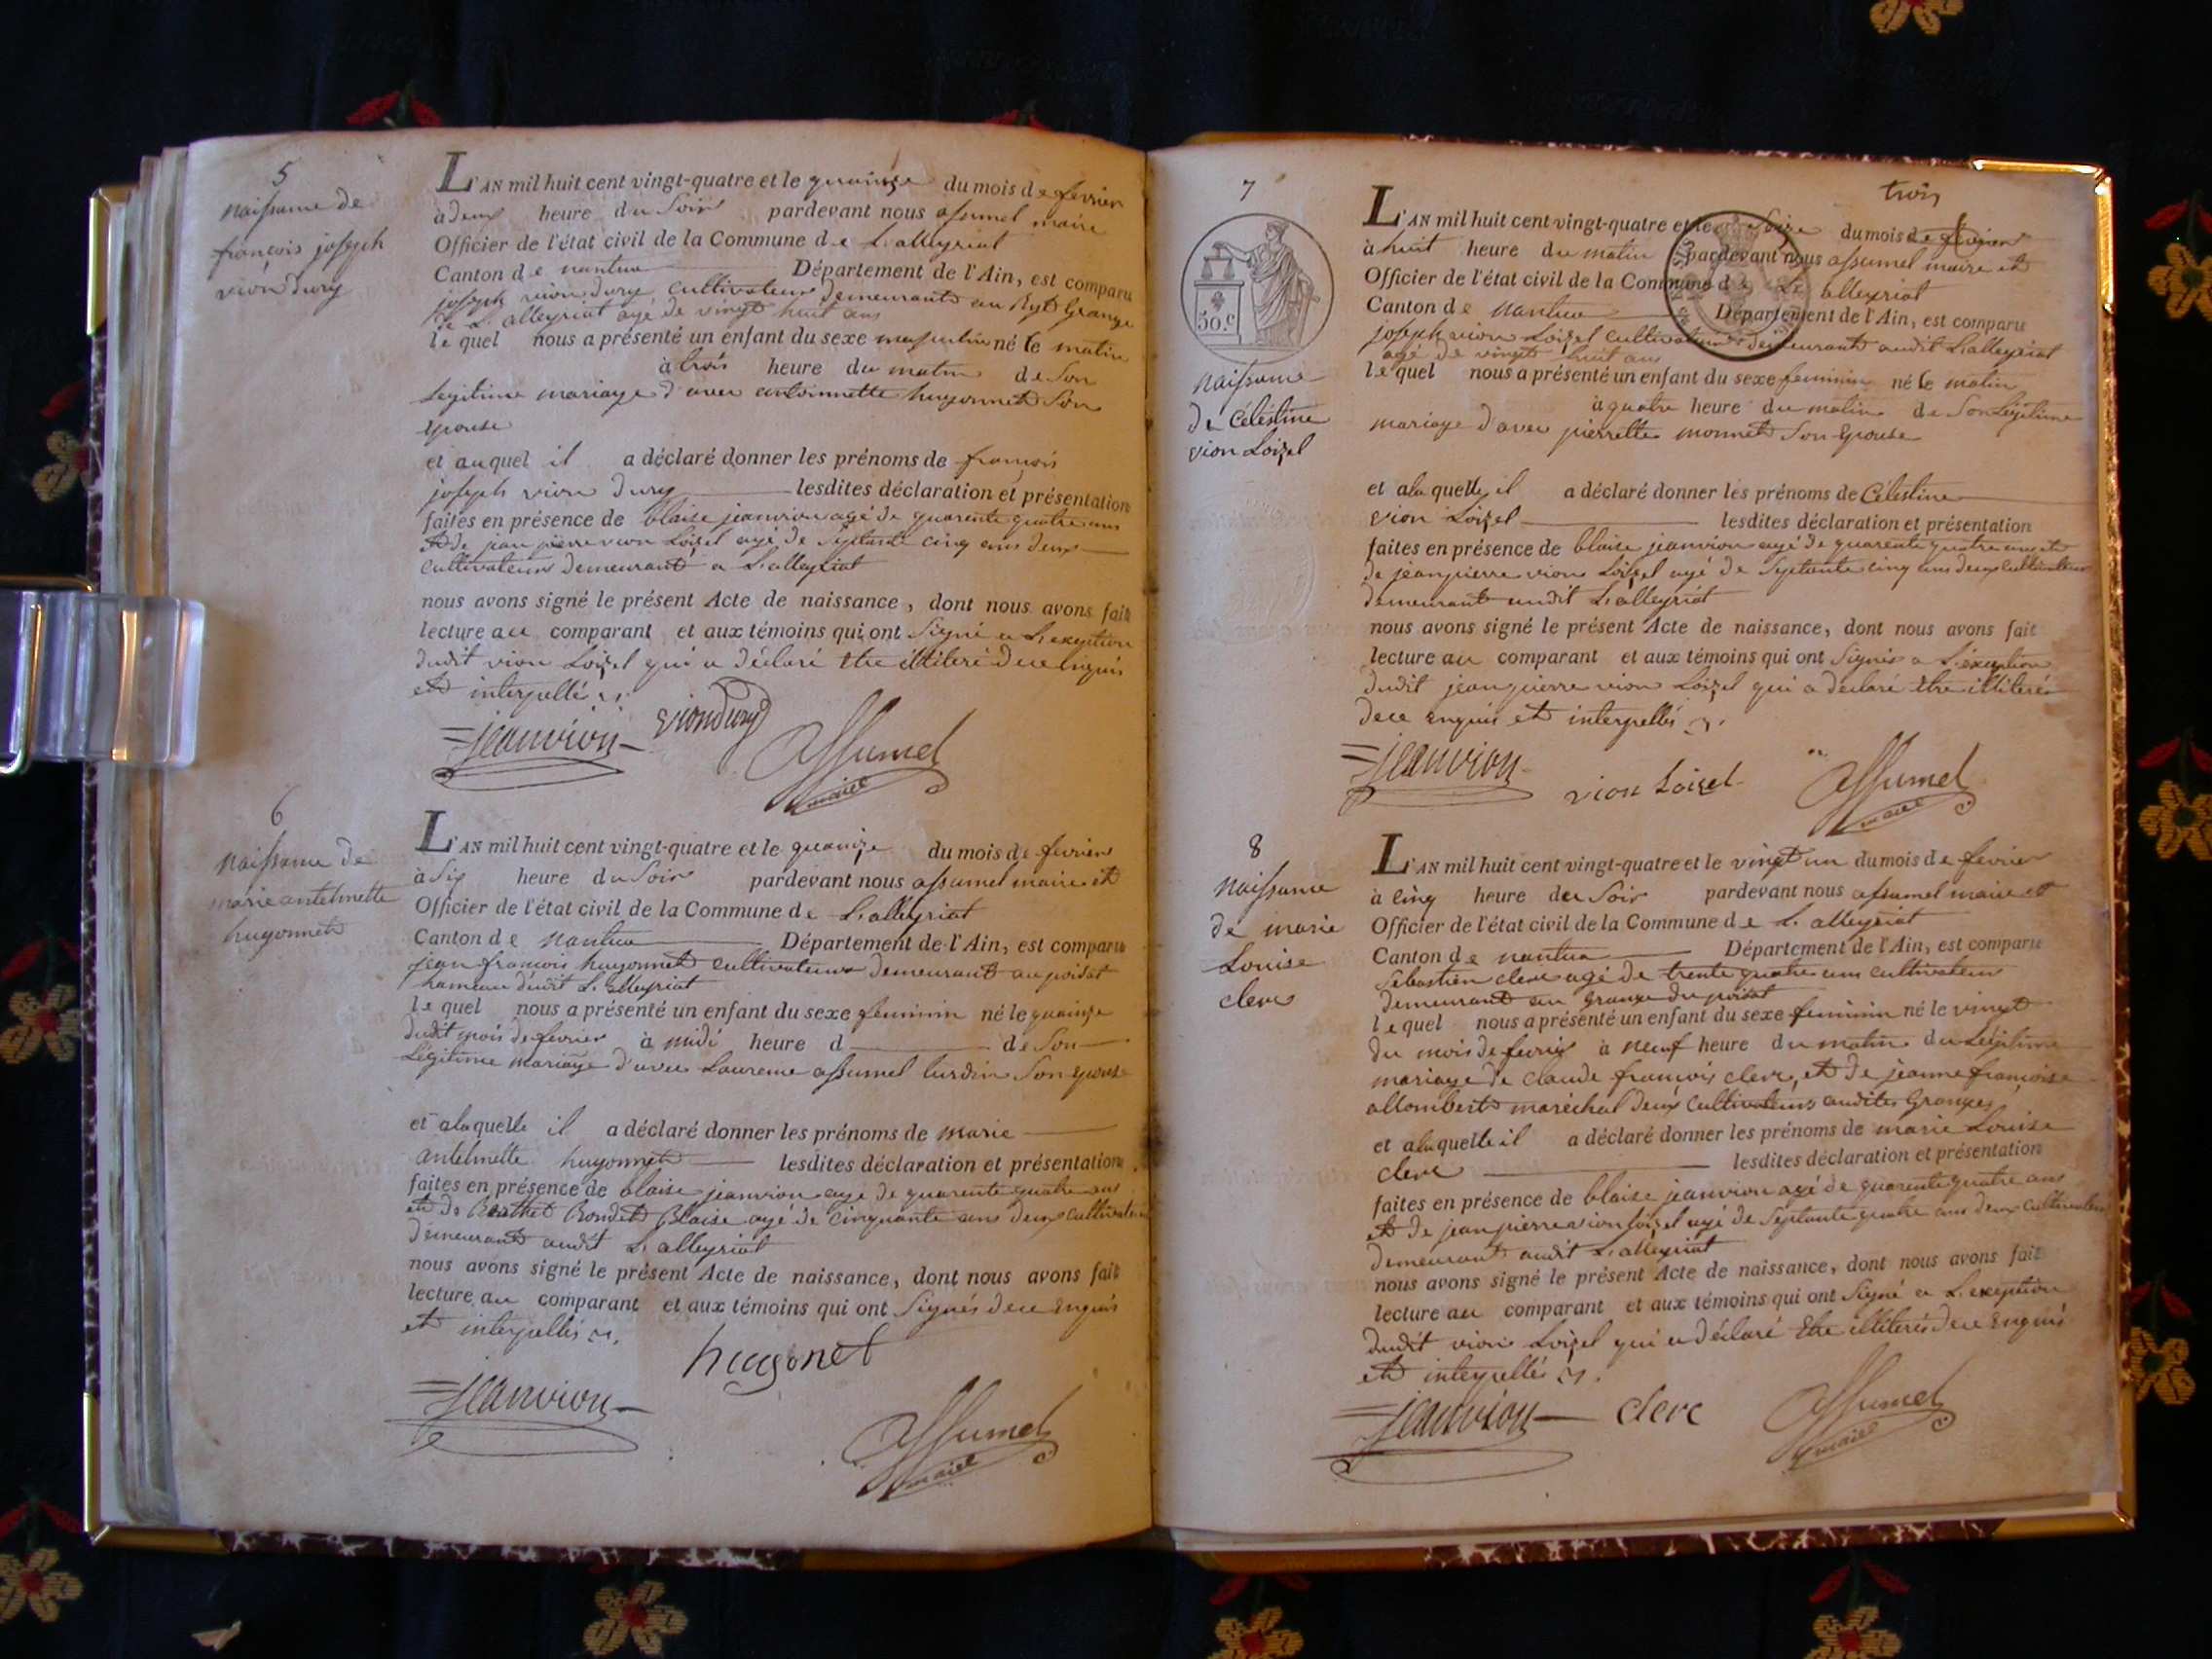 5
naissance de
françois joseph
vion dury
L'AN mil huit cent vingt-quatre et le quainze du mois de fevrier
à deux heure du Soir pardevant nous assumel maire
Officier de l'état civil de la Commune de L'alleyriat
Canton de nantua Département de l'Ain, est comparu
joseph vion dury cultivateur demeurant au
de L'alleyriat agé de vingt huit ans
lequel nous a présenté un enfant du sexe masculin né le matin
à trois heure du matin de Son
Legitime mariage d'avec antoinnette hugonnet Son
Epouse
et auquel il a déclaré donner les prénoms de françois
joseph vion dury lesdites déclaration et présentation
faites en présence de blaise jeanvion agé de quarente quatre ans
et de jean pierre vion Loizel agé de Septante cinq ans deux
cultivateurs demeurant a L'alleyriat
nous avons signé le présent Acte de naissance, dont nous avons fait
lecture au comparant et aux témoins qui ont Signé a L'exeption
dudit vion Loizel qui a déclaré Etre illiteré de ce
et interpellés
jeanvion viondury assumel
maire
6
naissance de
marie antelmette
hugonnet
L'AN mil huit cent vingt-quatre et le quainze du mois de fevrier
à Six heure du Soir pardevant nous assumel maire et
Officier de l'état civil de la Commune de L'alleyriat
Canton de nantua Département de l'Ain, est comparu
jean françois hugonnet cultivateur demeurant au poisat
hameau dudit L'alleyriat
lequel nous a présenté un enfant du sexe feminin né le quainze
dudit mois de fevrier à midi heure d de Son
Légitime mariage d'avec Laurence assumel lurdin Son Epouse
et a laquelle il a déclaré donner les prénoms de marie
antelmette hugonnet lesdites déclaration et présentation
faites en présence de blaise jeanvion agé de quarente quatre ans
et de Berthet Bondet Blaise agé de cinquante ans deux cultivateurs
demeurant audit L'alleyriat
nous avons signé le présent Acte de naissance, dont nous avons fait
lecture au comparant et aux témoins qui ont Signés de ce Enquis
et interpellés
hugonet
jeanvion
assumel
maire
trois
7
50.c
naissance
de Célestine
vion Loizel
L'AN mil huit cent vingt-quatre et le Seize du mois de fevrier
à huit heure du matin pardevant nous assumel maire et
Officier de l'état civil de la Commune de L'alleyriat
Canton de nantua Département de l'Ain, est comparu
joseph vion Loizel cultivateur demeurant audit L'alleyriat
agé de vingt huit ans
lequel nous a présenté un enfant du sexe feminin né le matin
à quatre heure du matin de Son Légitime
mariage d'avec pierrette monnet Son Epouse
et a laquelle il a déclaré donner les prénoms de Célestine
vion Loizel lesdites déclaration et présentation
faites en présence de blaise jeanvion agé de quarente quatre ans et
de jean pierre vion Loizel agé de Septante cinq ans deux cultivateurs
demeurant audit L'alleyriat
nous avons signé le présent Acte de naissance, dont nous avons fait
lecture au comparant et aux témoins qui ont Signés a L'éxception
dudit jean pierre vion Loizel qui a déclaré Etre illiterés
de ce enquis et interpellés
jeanvion vion Loizel assumel
maire
8
naissance
de marie
Louise
clerc
L'AN mil huit cent vingt-quatre et le vingt un du mois de fevrier
à cinq heure du Soir pardevant nous assumel maire et
Officier de l'état civil de la Commune de L'alleyriat
Canton de nantua Département de l'Ain, est comparu
Sébastien clerc agé de trente quatre ans cultivateur
demeurant au grange du poisat
lequel nous a présenté un enfant du sexe feminin né le vingt
du mois de fevrier à neuf heure du matin du Légitime
mariage de claude françois clerc, et de jeanne françoise
allombert maréchal deux cultivateurs audites Granges
et a laquelle il a déclaré donner les prénoms de marie Louise
clerc lesdites déclaration et présentation
faites en présence de blaise jeanvion agé de quarente quatre ans
et de jean pierre vion Loizel agé de Septante quatre ans deux cultivateurs
demeurant audit L'alleyriat
nous avons signé le présent Acte de naissance, dont nous avons fait
lecture au comparant et aux témoins qui ont Signé a L'exeption
dudit vion Loizel qui a déclaré Etre illiterés de ce Enquis
et interpellés
jeanvion clerc assumel
maire